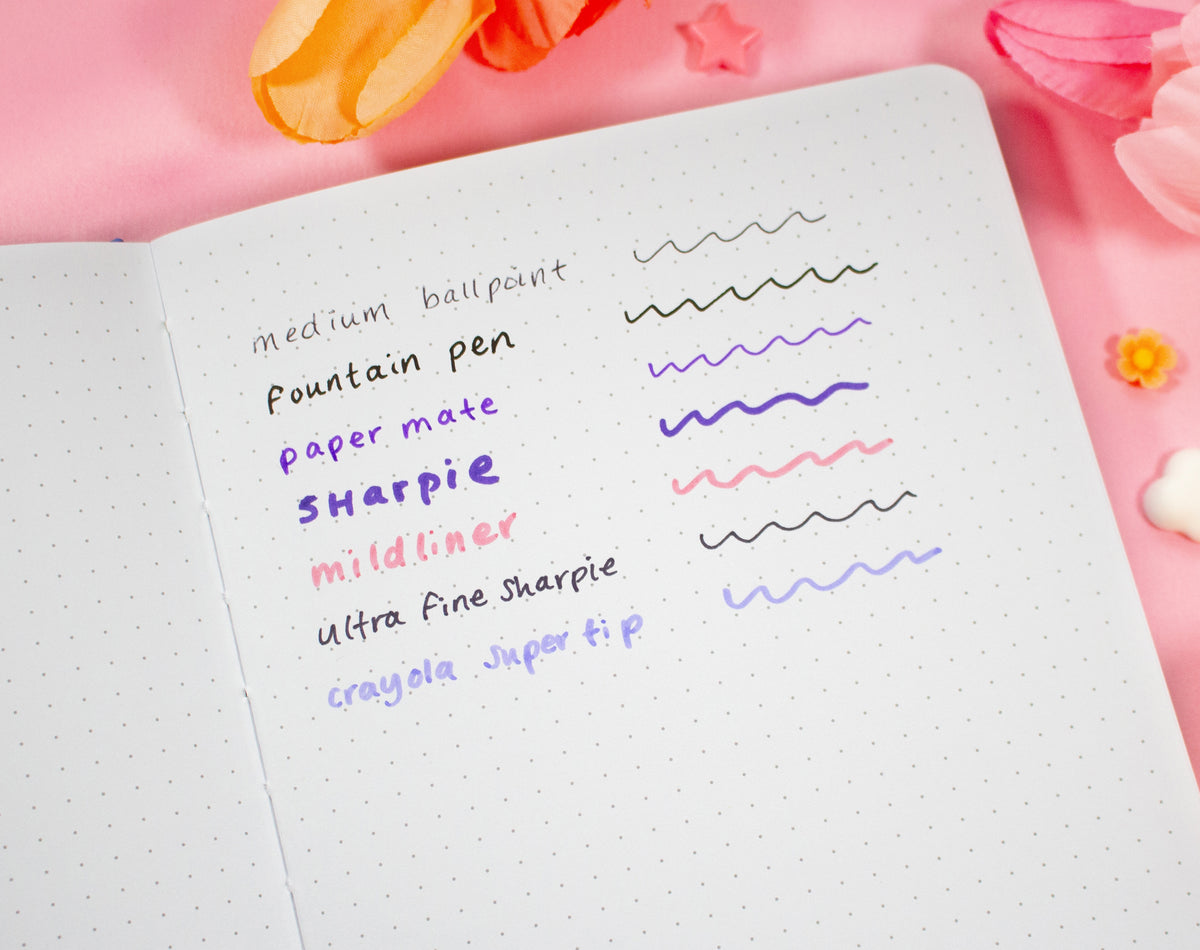 medium ballpoint
fountain pen
paper mate
SHarpie
mildliner
ultra fine sharpie
crayola super tip